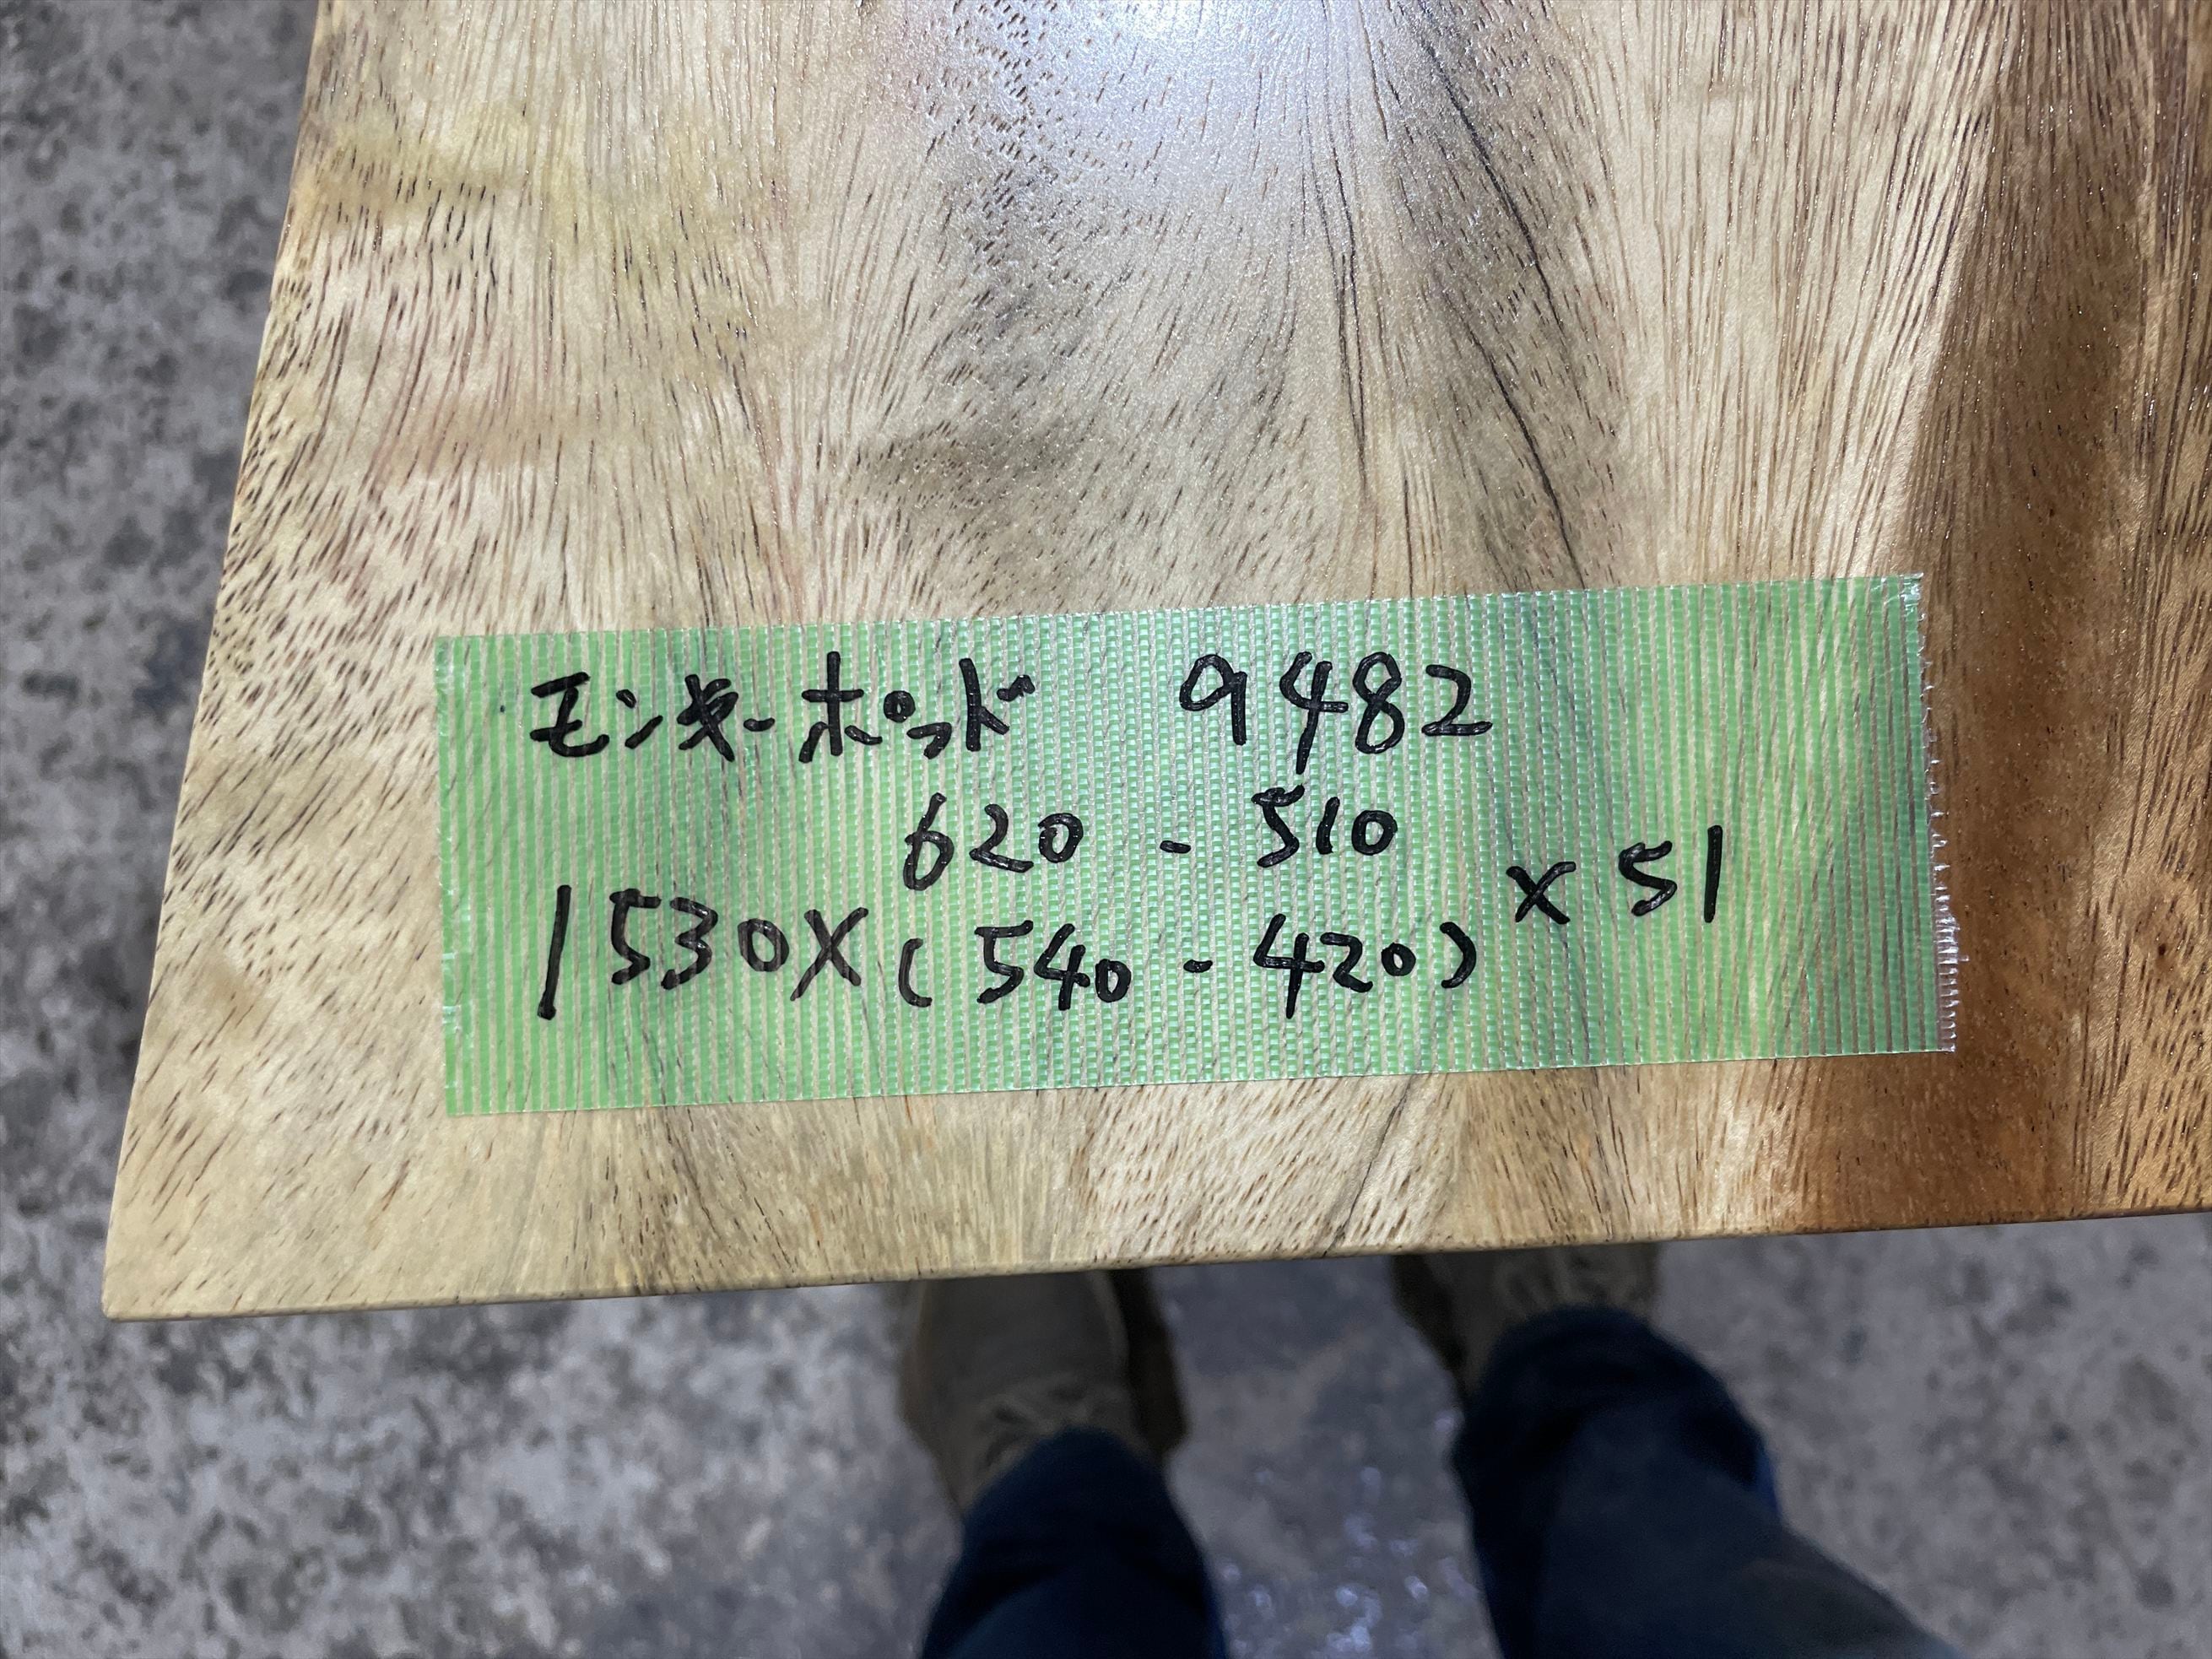 モンキーポッド 9482
620 - 510
1530×(540 - 420) × 51